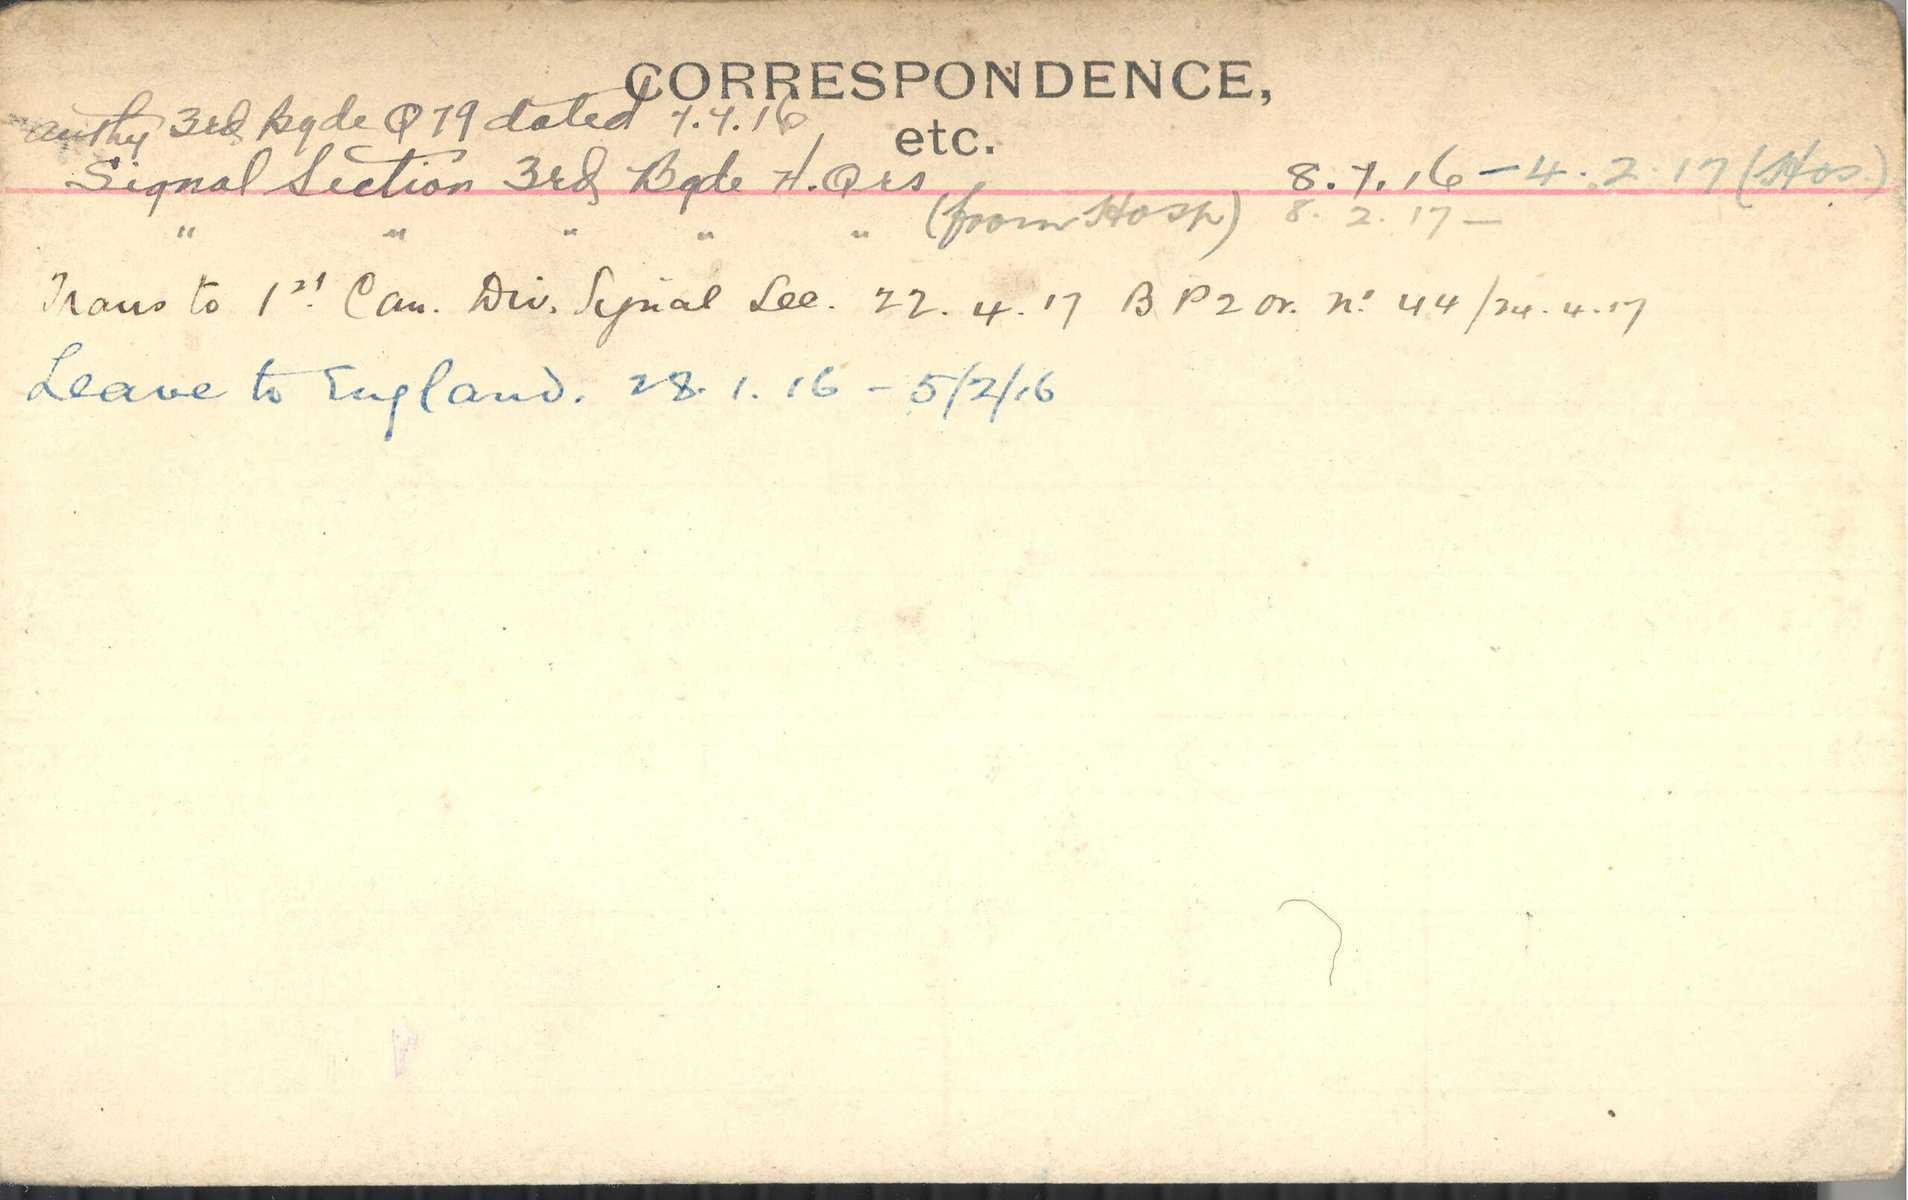 CORRESPONDENCE,
etc.
authy 3rd Bgde Q 79 dated 7.7.16
Signal Section 3rd Bgde H.Qrs 8.7.16 – 4.2.17 (Hos.)
" " " " " (from Hosp) 8.2.17 –
Trans to 1st Can. Div. Signal Sec. 22.4.17 B P2 Or. No 44/24.4.17
Leave to England. 28.1.16 – 5/2/16